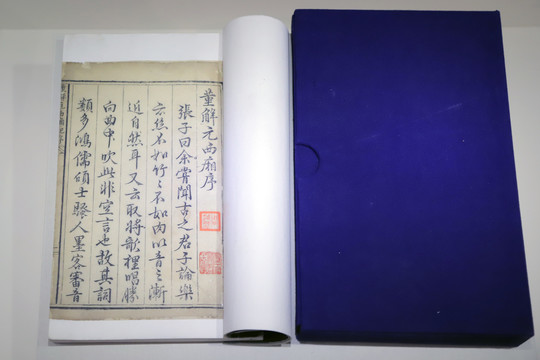 董解元西廂序
張子曰余嘗聞古之君子論樂
云絲不如竹〻不如肉以音之漸
近自然耳又云取將歌裡唱勝
向曲中吹此非空言也故其詞
類多鴻儒碩士騷人墨客審音